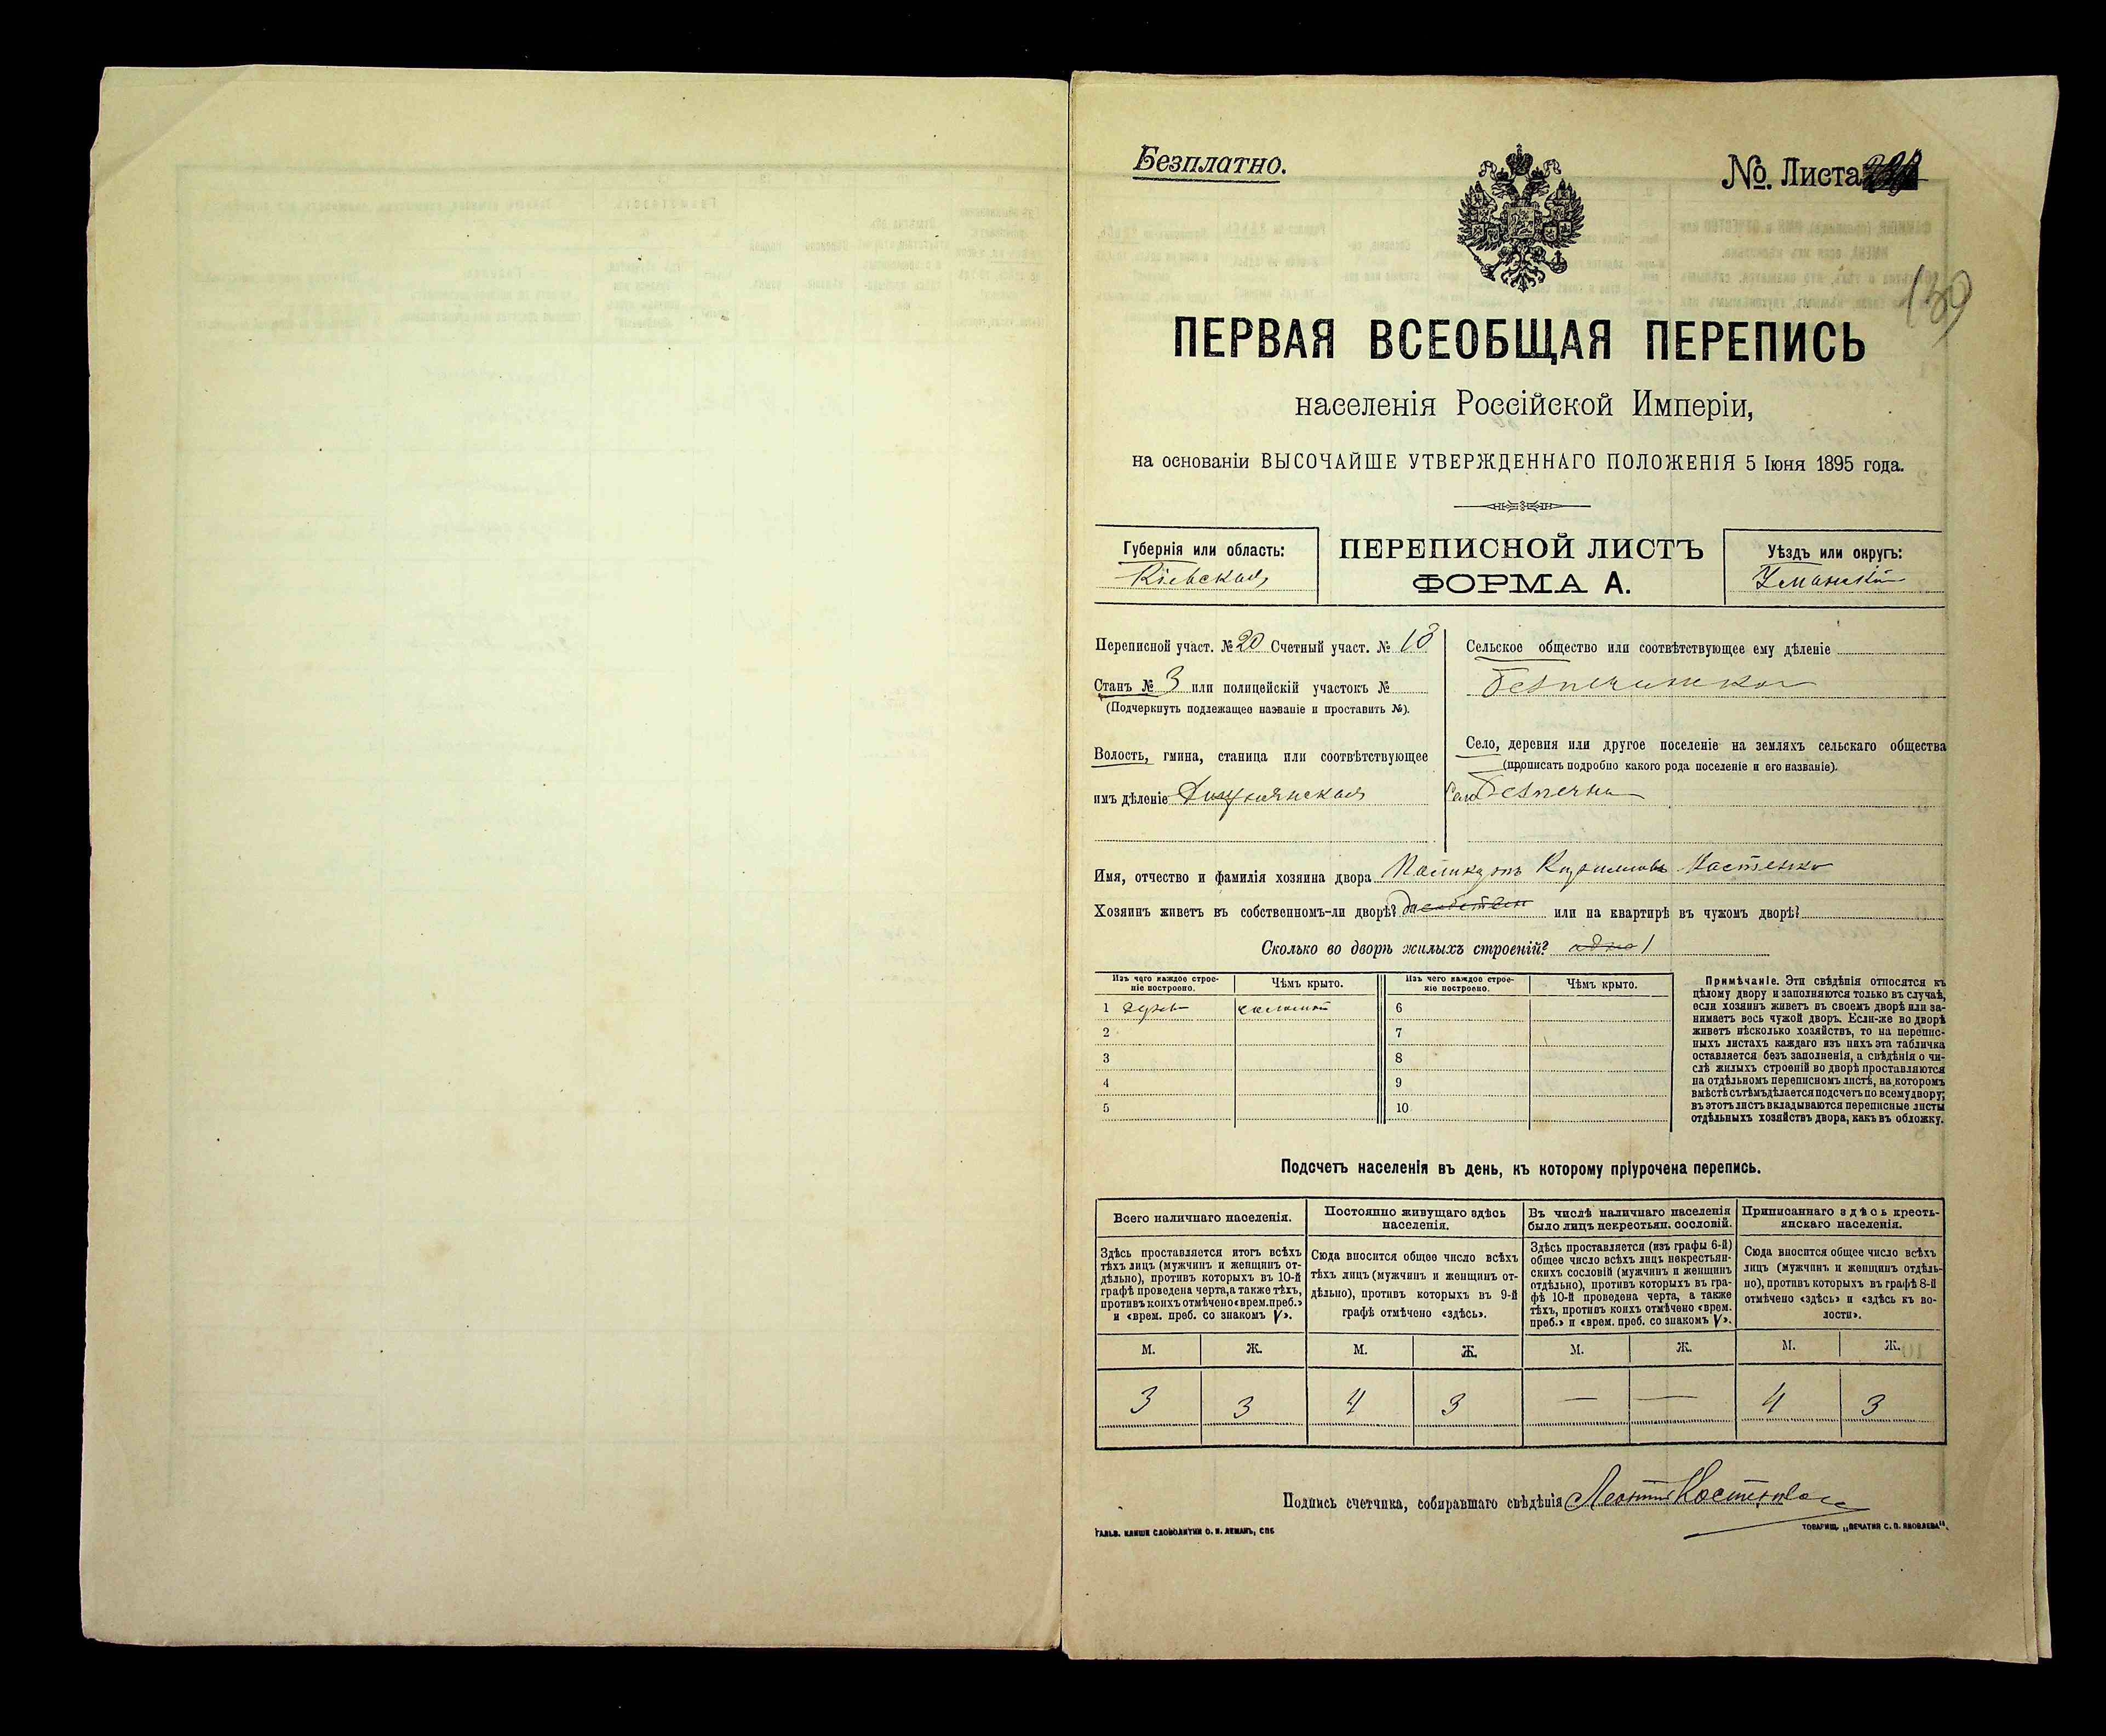 Безплатно.
№. Листа
139
ПЕРВАЯ ВСЕОБЩАЯ ПЕРЕПИСЬ
населенія Россійской Имперіи,
на основаніи ВЫСОЧАЙШЕ УТВЕРЖДЕННАГО ПОЛОЖЕНІЯ 5 Іюня 1895 года.
Губернія или область:
Кіевская
ПЕРЕПИСНОЙ ЛИСТЪ
ФОРМА А.
Уѣздъ или округъ:
Уманскій
Переписной участ. № 20 Счетный участ. № 18
Станъ № 3 или полицейскій участокъ №
(Подчеркнуть подлежащее названіе и проставить №).
Волость, гмина, станица или соотвѣтствующее
имъ дѣленіе
Сельское общество или соотвѣтствующее ему дѣленіе
Село, деревня или другое поселеніе на земляхъ сельскаго общества
(прописать подробно какого рода поселеніе и его названіе).
Село Безпечна
Имя, отчество и фамилія хозяина двора
Хозяинъ живетъ въ собственномъ-ли дворѣ? Да или на квартирѣ въ чужомъ дворѣ?
Сколько во дворѣ жилыхъ строеній? одно 1
Изъ чего каждое строе-
ніе построено.
Чѣмъ крыто.
Изъ чего каждое строе-
ніе построено.
Чѣмъ крыто.
1 соломой 6
2 7
3 8
4 9
5 10
Примѣчаніе. Эти свѣдѣнія относятся къ
цѣлому двору и заполняются только въ случаѣ,
если хозяинъ живетъ въ своемъ дворѣ или за-
нимаетъ весь чужой дворъ. Если-же во дворѣ
живетъ нѣсколько хозяйствъ, то на перепис-
ныхъ листахъ каждаго изъ нихъ эта табличка
оставляется безъ заполненія, а свѣдѣнія о чи-
слѣ жилыхъ строеній во дворѣ проставляются
на отдѣльномъ переписномъ листѣ, на которомъ
вмѣстѣ съ тѣмъ дѣлается подсчетъ по всему двору;
въ этотъ листъ вкладываются переписные листы
отдѣльныхъ хозяйствъ двора, какъ въ обложку.
Подсчетъ населенія въ день, къ которому пріурочена перепись.
Всего наличнаго населенія.
Постоянно живущаго здѣсь
населенія.
Въ числѣ наличнаго населенія
было лицъ некрестьян. сословій.
Приписаннаго здѣсь кресть-
янскаго населенія.
Здѣсь проставляется итогъ всѣхъ
тѣхъ лицъ (мужчинъ и женщинъ от-
дѣльно), противъ которыхъ въ 10-й
графѣ проведена черта, а также тѣхъ,
противъ коихъ отмѣчено «врем. преб.»
и «врем. преб. со знакомъ V».
Сюда вносится общее число всѣхъ
тѣхъ лицъ (мужчинъ и женщинъ от-
дѣльно), противъ которыхъ въ 9-й
графѣ отмѣчено «здѣсь».
Здѣсь проставляется (изъ графы 6-й)
общее число всѣхъ лицъ некрестьян-
скихъ сословій (мужчинъ и женщинъ
отдѣльно), противъ которыхъ въ гра-
фѣ 10-й проведена черта, а также
тѣхъ, противъ коихъ отмѣчено «врем.
преб.» и «врем. преб. со знакомъ V».
Сюда вносится общее число всѣхъ
лицъ (мужчинъ и женщинъ отдѣль-
но), противъ которыхъ въ графѣ 8-й
отмѣчено «здѣсь» и «здѣсь къ во-
лости».
М. Ж. М. Ж. М. Ж. М. Ж.
3 3 4 3 — — 4 3
Подпись счетчика, собиравшаго свѣдѣнія
ГАЛЬВ. КЛИШЕ СЛОВОЛИТНИ О. И. ЛЕМАНЪ, СПБ
ТОВАРИЩ. „ПЕЧАТНЯ С. П. ЯКОВЛЕВА".